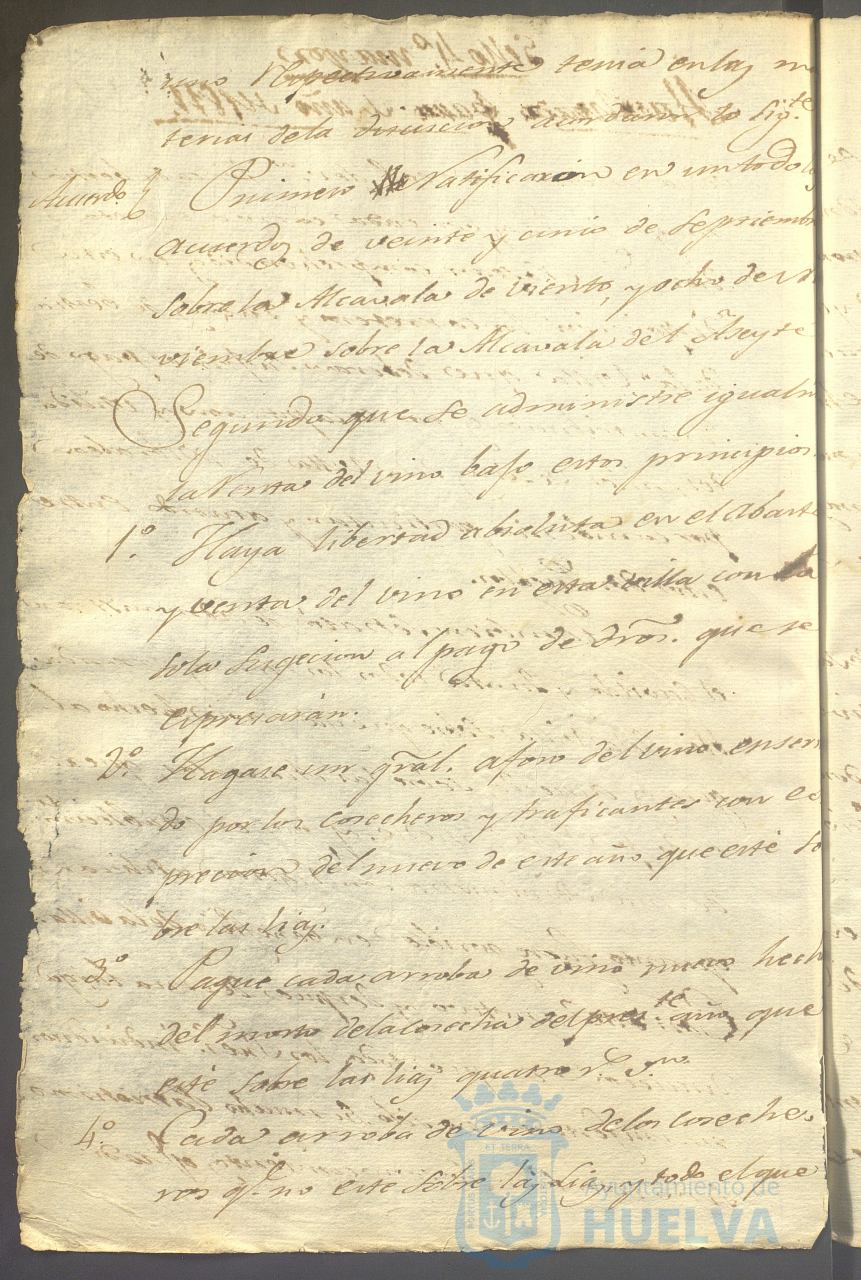 uno respectivamente tenia en las ma
terias de la discusion acordaron lo sig.te
Acuerdo Primero Ratificaron en un todo los
acuerdos de veinte y cinco de Septiembre
sobre la Alcavala de viento, y ocho de No
viembre sobre la Alcavala del Aseyte
Segundo que se administre igualm
la Renta del vino bajo estos principios
1.º Haya libertad absoluta en el abasto
y venta del vino en esta villa con la
sola sugecion al pago de dros. que se
expresarán.
2.º Hagase un gral. aforo del vino encerra
do por los cosecheros y traficantes con es
precion del nuevo de este año que esté so
bre las lias.
3.º Pague cada arroba de vino nuevo hecho
del mosto de la cosecha del pres.te año que
esté sobre las lias quatro r.s v.on
4.º Cada arroba de vino de los coseche
ros q.e no esté sobre las lias y todo el que
Ayuntamiento de
HUELVA